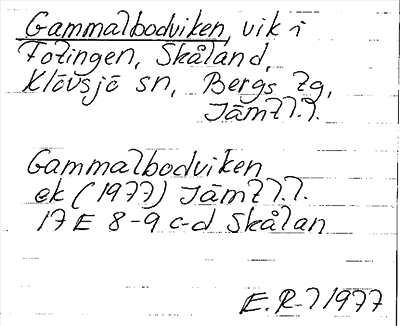 Gammalbodviken, vik i
Fotingen, Skåland,
Klövsjö sn, Bergs tg,
Jämtl. l.
Gammalbodviken
ek (1977) Jämtl. l.
17 E 8-9 c-d Skålan
E. R-l 1977